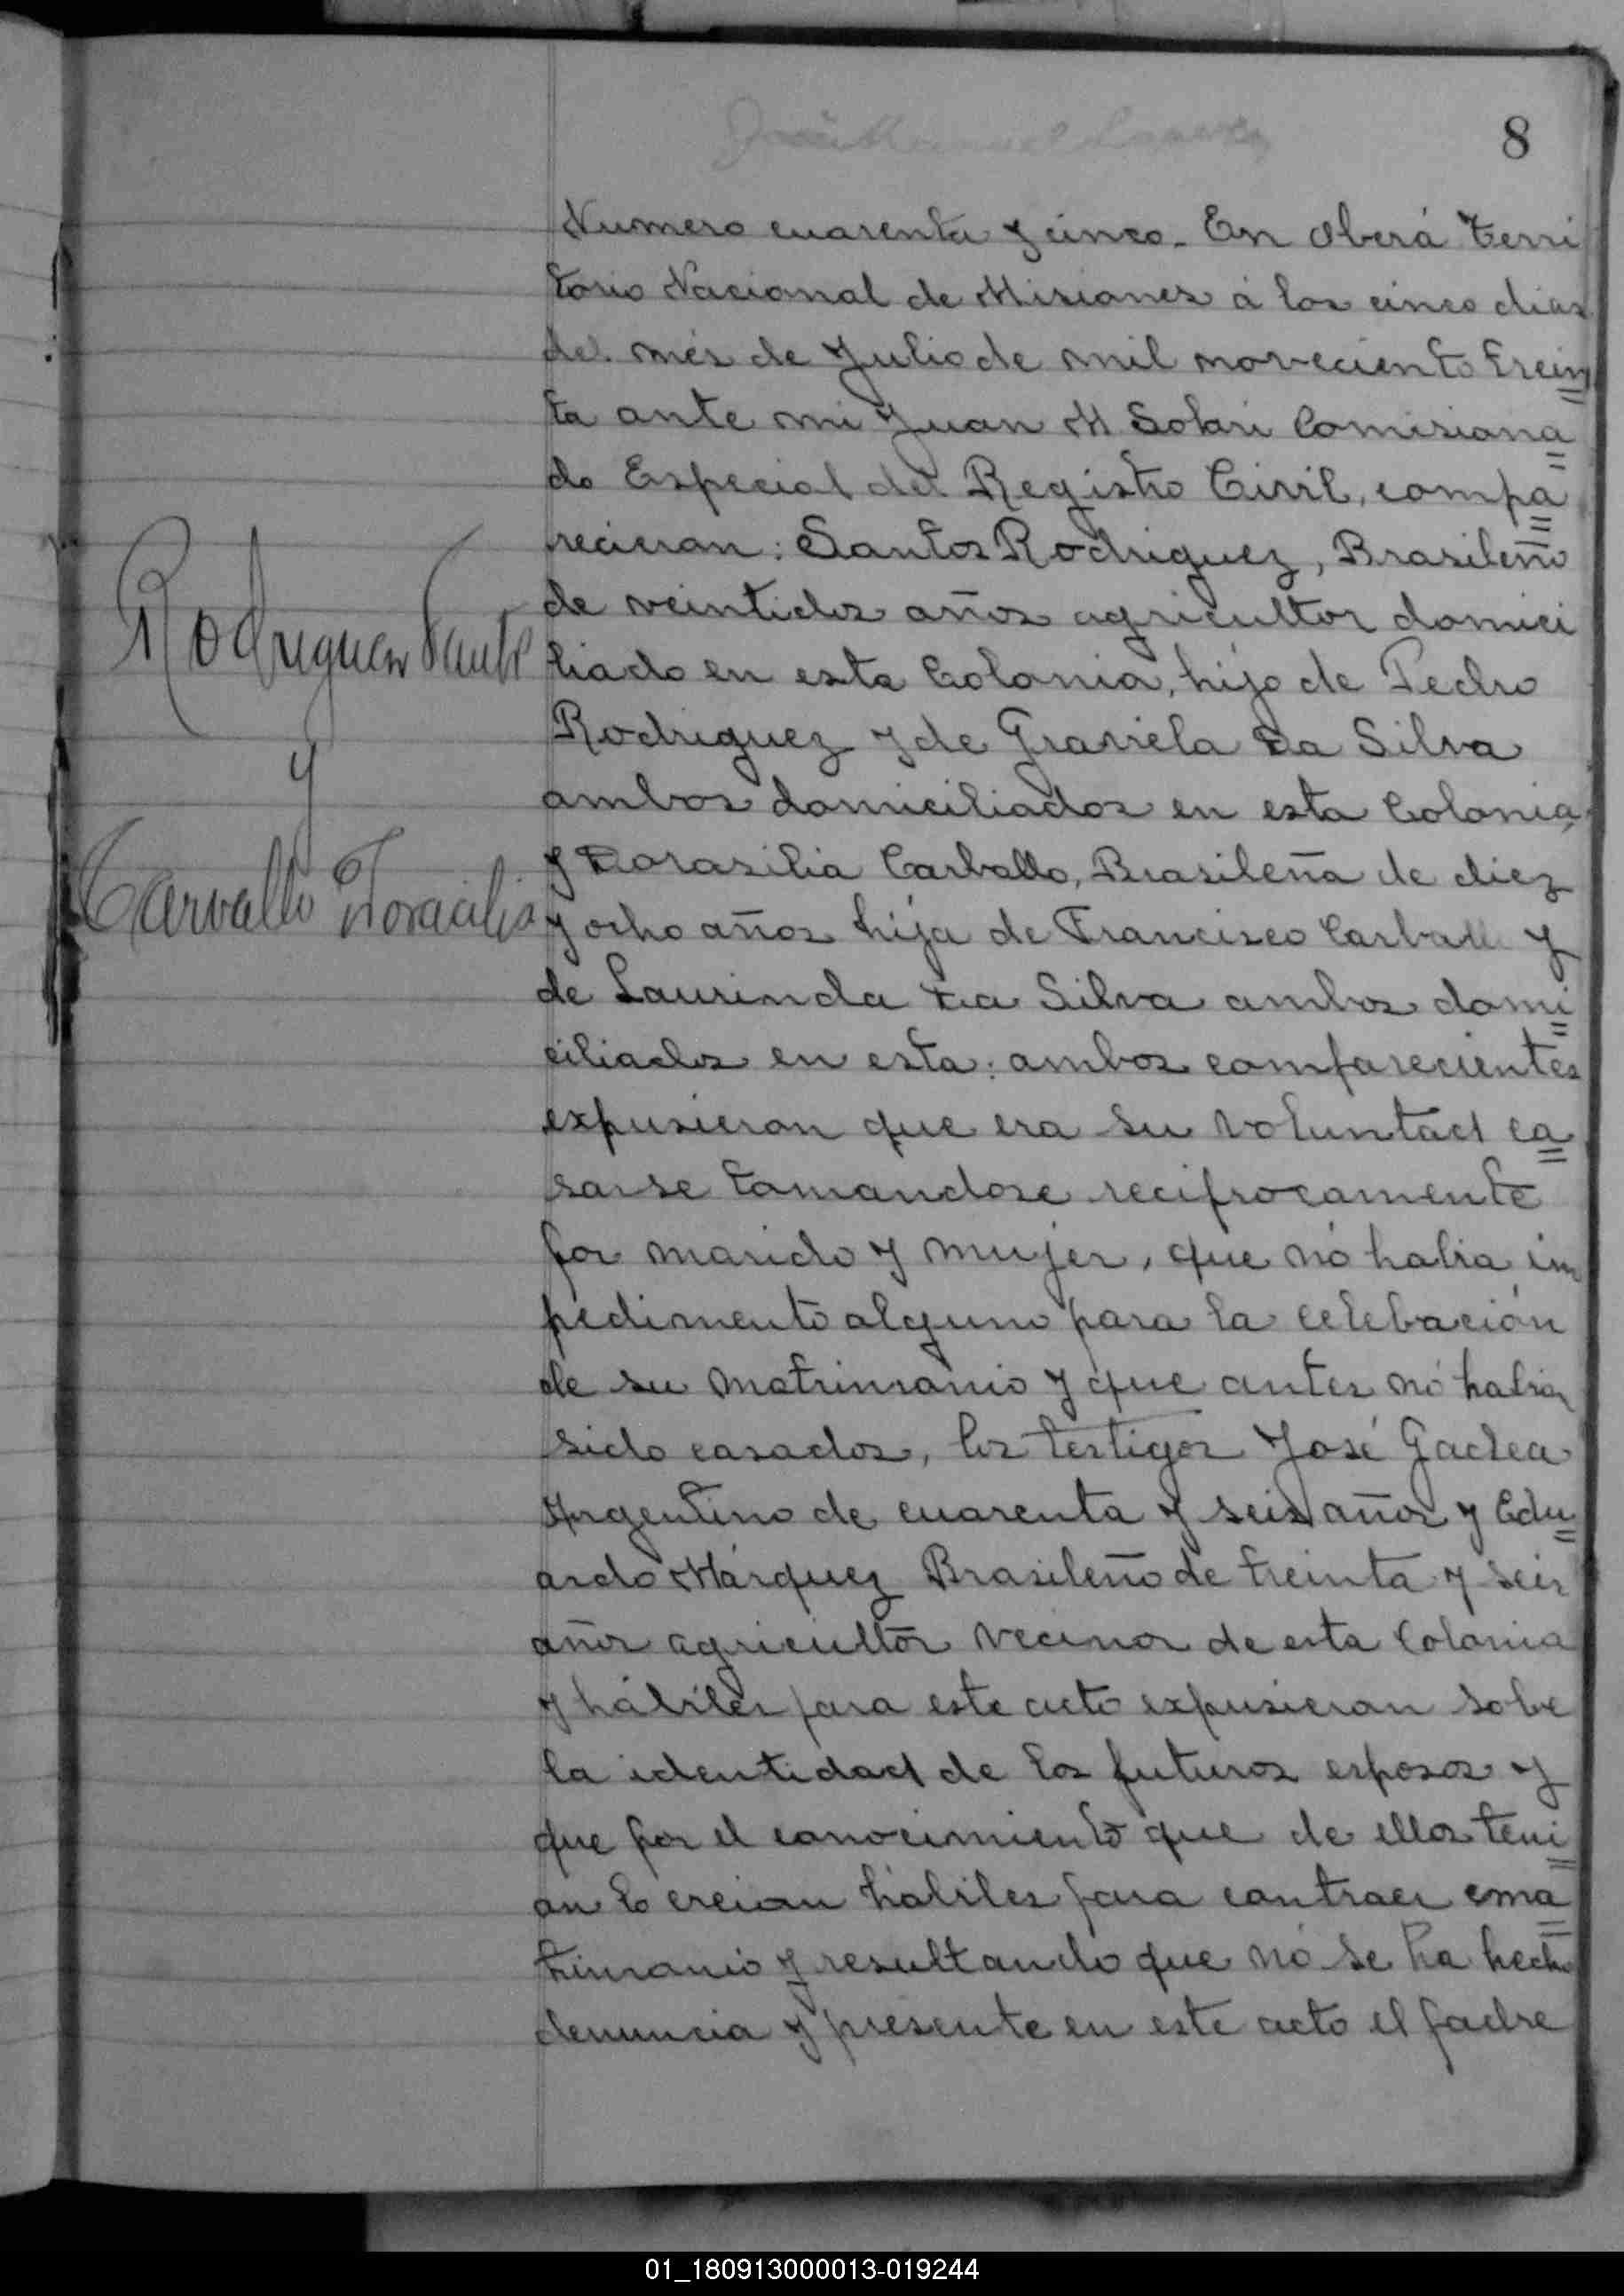 8
Numero cuarenta y cinco - En Oberá Terri
torio Nacional de Misiones á los cinco dias
del més de Julio de mil noveciento trein
ta ante mi Juan M Solari Comisiona
do Especial del Registro Civil, compa
recieron: Santos Rodriguez, Brasileño
de veintidos años agricultor domici
Rodriguez Santos
liado en esta Colonia, hijo de Pedro
Rodriguez y de Graviela Da Silva
y
ambos domiciliados en esta Colonia,
y Dorasilia Carballo, Brasileña de diez
Carvallo
y ocho años hija de Francisco Carballo y
de Laurinda Da Silva ambos domi
ciliados en esta: ambos comparecientes
expusieron que era su voluntad ca
sarse tomandose reciprocamente
por marido y mujer, que nó habia im
pedimento alguno para la celebación
de su matrimonio y que antes nó habian
sido casados, los testigos José Gadea
Argentino de cuarenta y seis años y Edu
ardo Márquez Brasileño de treinta y seis
años agricultor vecinos de esta Colonia
y hábiles para este acto expusieron sobe
la identidad de los futuros esposos y
que por el conocimiento que de ellos teni
an lo creian hábiles para contraer ma
trimonio y resultando que nó se ha hecho
denuncia y presente en este acto el padre
01_180913000013-019244